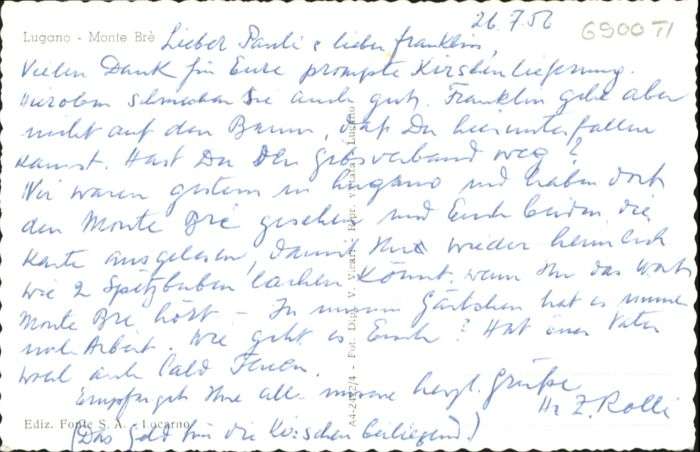 26.7.56
6900 TI
Lugano - Monte Brè
Lieber Pauli & lieber Franklin,
Vielen Dank für Eure prompte Kirschenlieferung.
Hieroben schmecken Sie auch gut. Franklin gehe aber
nicht auf den Baum, dass Du hier unterfallen
kannst. Hast Du Den Gipsverband weg?
Wir waren gestern in Lugano und haben dort
den Monte Brè gesehen und Euch beiden die
Karte ausgelesen, damit Ihr wieder heimlich
wie 2 Spitzbuben lachen könnt, wenn Ihr das Wort
Monte Brè hört - In unserem Gärtchen hat es immer
noch Arbeit. Wie geht es Euch? Hat euer Vater
wohl auch bald Ferien.
Empfanget Ihr alle unsere herzl. Grüsse
Z. Rolli
(Das Geld für die Kirschen beiliegend!)
Ediz. Fonte S. A. - Locarno
A4-2082/4 - Fot. Dipl. V. Vicari - Lugano